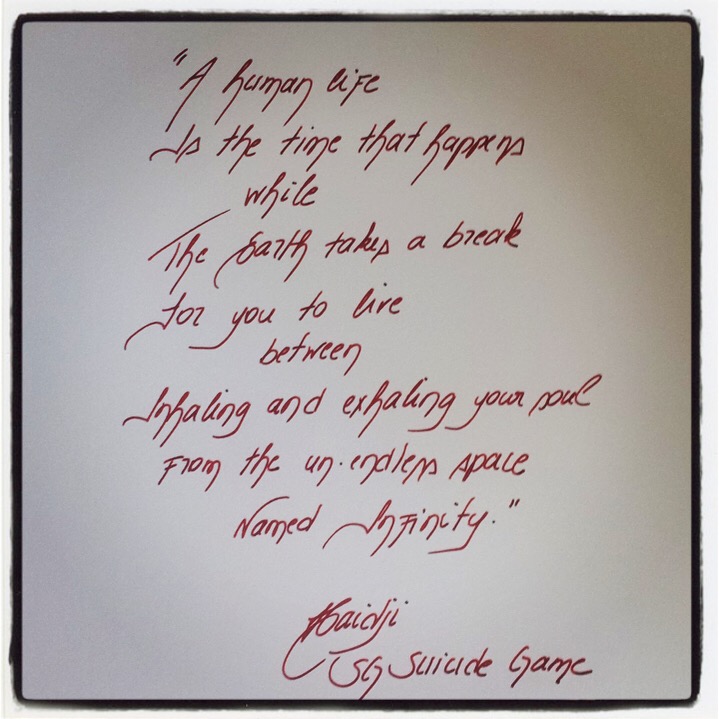 "A human life
Is the time that happens
while
The Earth takes a break
for you to live
between
Inhaling and exhaling your soul
From the un.endless space
Named Infinity."
Haidji
SG Suicide Game